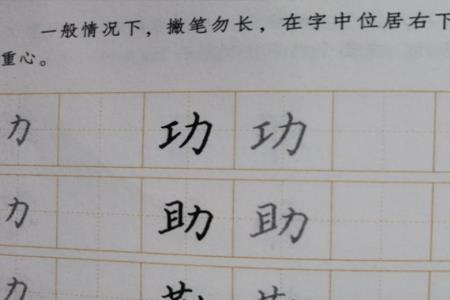 一般情况下，撇笔勿长，在字中位居右下
重心。
力 功 功
力 助 助